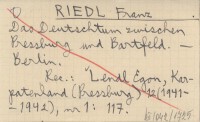 RIEDL Franz
Das Deutschtum zwischen
Pressburg und Bartfeld. —
Berlin.
Rec.: Lendl Egon, Kar-
patenland (Pressburg) 12/1941-
-1942), nr 1: 117.